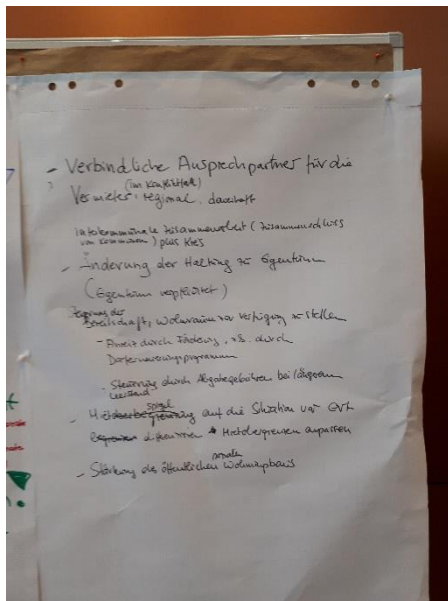 - Verbindliche Ansprechpartner für die
(im Konfliktfall)
Vermieter, regional, dauerhaft
interkommunale Zusammenarbeit (Zusammenschluss
von Kommunen) plus Kreis
- Änderung der Haltung zu Eigentum
(Eigentum verpflichtet)
Steigerung der
Bereitschaft, Wohnraum zur Verfügung zu stellen
- Anreiz durch Förderung, z.B. durch
Dorferneuerungsprogramm
- Steuerung durch Abgabegebühren bei längerem
Leerstand
spiegel
auf die Situation vor Ort
Mietobergrenzen anpassen
sozialen
- Stärkung des öffentlichen Wohnungsbaus